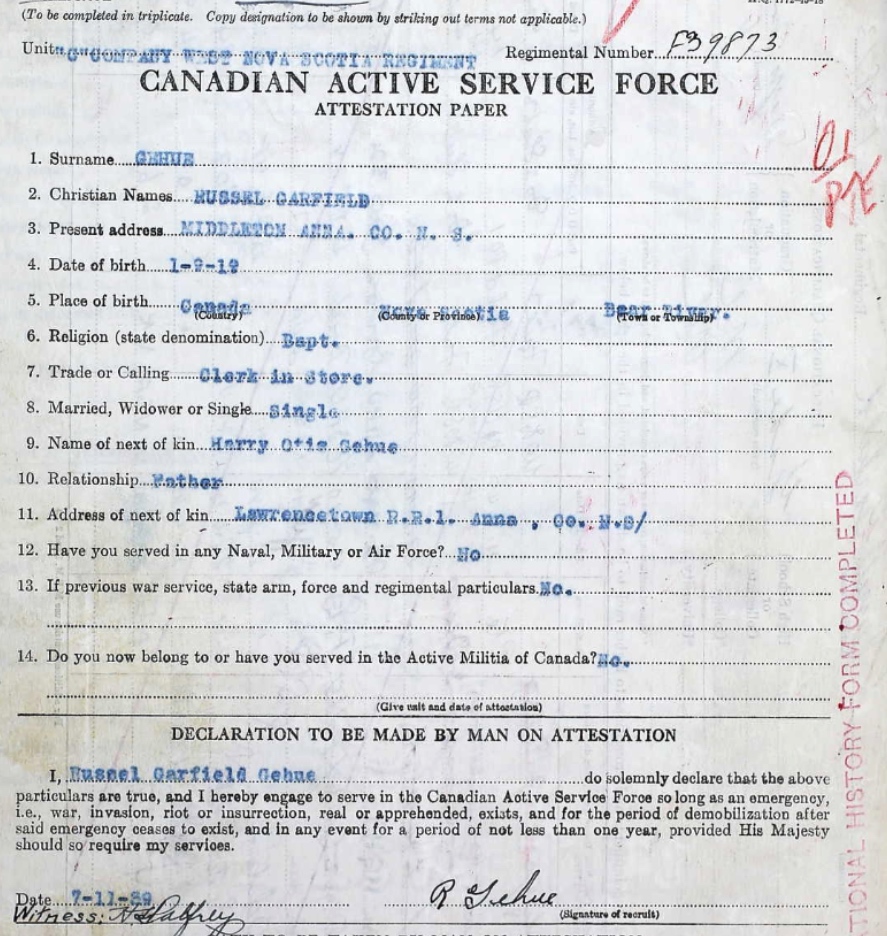 (To be completed in triplicate. Copy designation to be shown by striking out terms not applicable.)
Unit "G" COMPANY WEST NOVA SCOTIA REGIMENT Regimental Number F39873
CANADIAN ACTIVE SERVICE FORCE
ATTESTATION PAPER
01
PTE
1. Surname GEHUE
2. Christian Names RUSSEL GARFIELD
3. Present address MIDDLETON ANNA. CO. N. S.
4. Date of birth 1-9-19
5. Place of birth Canada Nova Scotia Bear River.
(Country) (County or Province) (Town or Township)
6. Religion (state denomination) Bapt.
7. Trade or Calling Clerk in Store.
8. Married, Widower or Single Single
9. Name of next of kin Harry Otis Gehue
10. Relationship Father
11. Address of next of kin Lawrencetown R.R.1. Anna , Co. N.S/
12. Have you served in any Naval, Military or Air Force? No
13. If previous war service, state arm, force and regimental particulars. No.
14. Do you now belong to or have you served in the Active Militia of Canada? No.
(Give unit and date of attestation)
DECLARATION TO BE MADE BY MAN ON ATTESTATION
I, Russel Garfield Gehue do solemnly declare that the above
particulars are true, and I hereby engage to serve in the Canadian Active Service Force so long as an emergency,
i.e., war, invasion, riot or insurrection, real or apprehended, exists, and for the period of demobilization after
said emergency ceases to exist, and in any event for a period of not less than one year, provided His Majesty
should so require my services.
Date 7-11-39 R Gehue
Witness: (Signature of recruit)
TIONAL HISTORY FORM COMPLETED